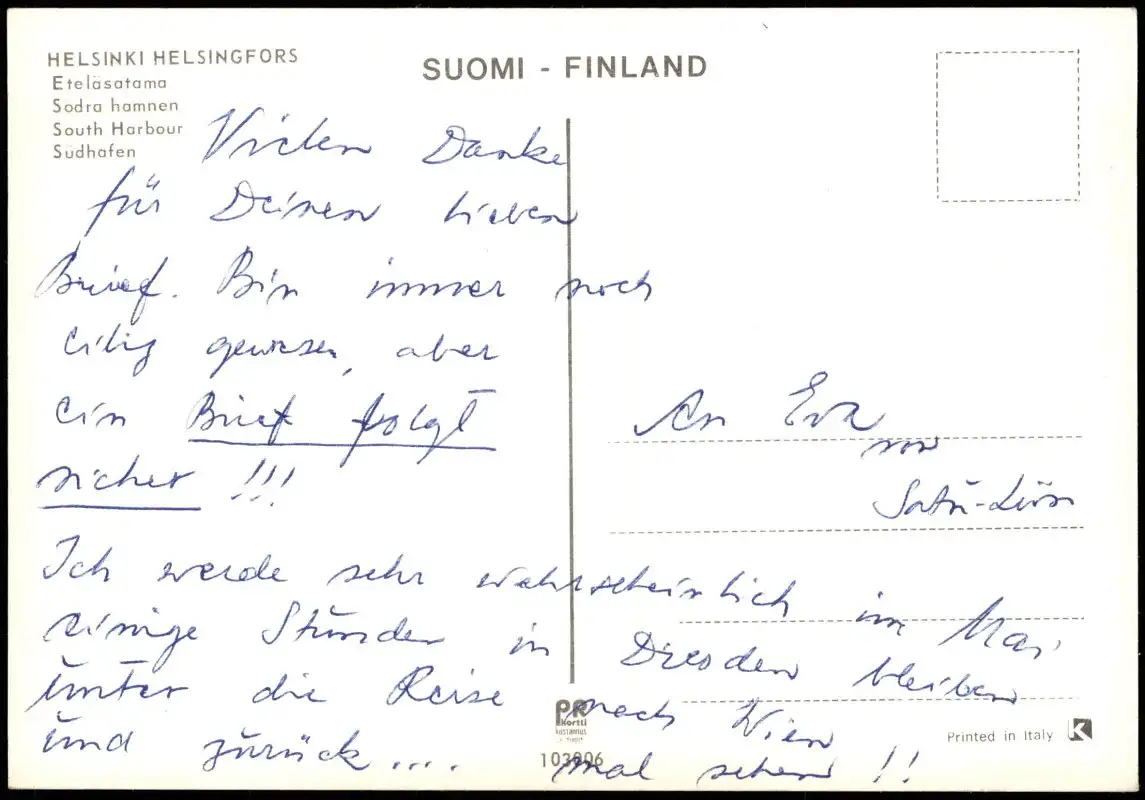 HELSINKI HELSINGFORS
Eteläsatama
Södra hamnen
South Harbour
Südhafen
SUOMI - FINLAND
Vielen Danke
für Deinen lieben
Brief. Bin immer noch
eilig gewesen, aber
ein Brief folgt
sicher !!!
An Eva
von
Ich werde sehr wahrscheinlich im Mai
einige Stunden in Dresden bleiben
unter die Reise nach Wien
und zurück .... mal sehen !!
PR
kortti
kustannus
103806
Printed in Italy
K